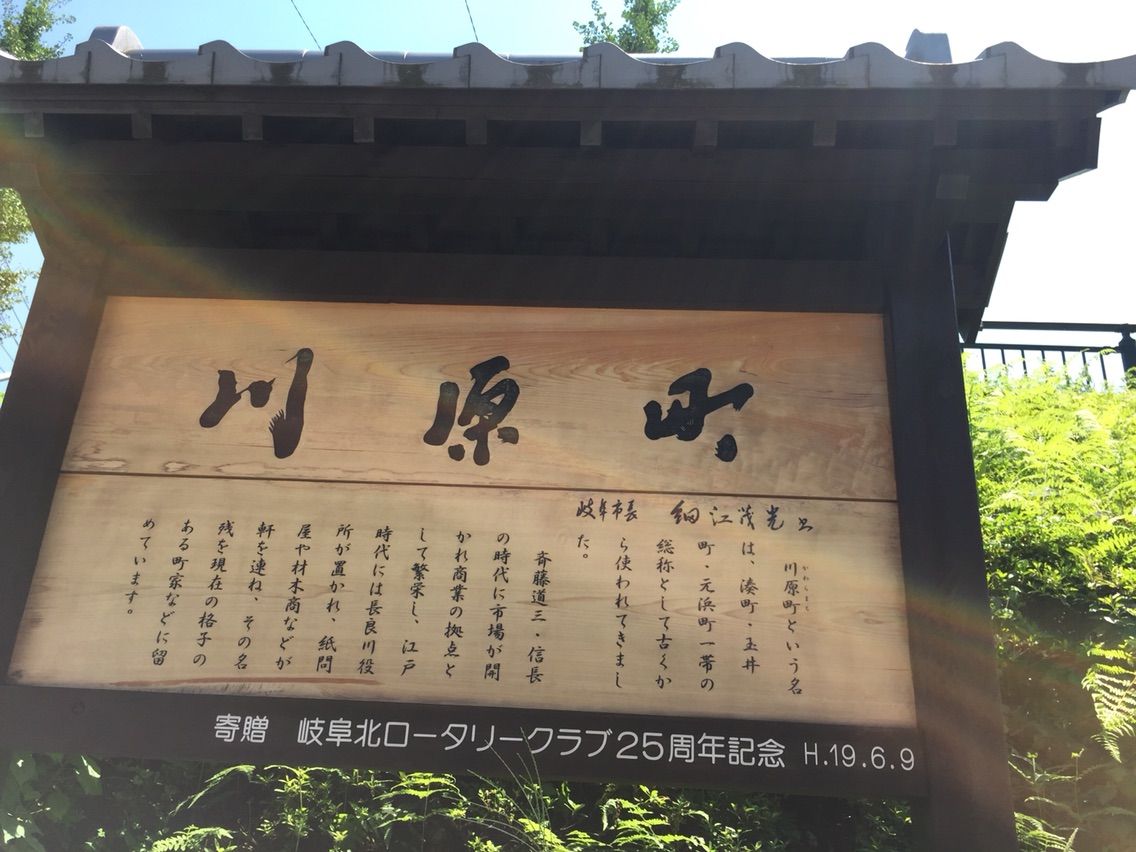 川原町
岐阜市長 細江茂光 書
川原町という名
かわらまち
は、湊町・玉井
町・元浜町一帯の
総称として古くか
ら使われてきまし
た。
斉藤道三・信長
の時代に市場が開
かれ商業の拠点と
して繁栄し、江戸
時代には長良川役
所が置かれ、紙問
屋や材木商などが
軒を連ね、その名
残を現在の格子の
ある町家などに留
めています。
寄贈 岐阜北ロータリークラブ25周年記念 H.19.6.9